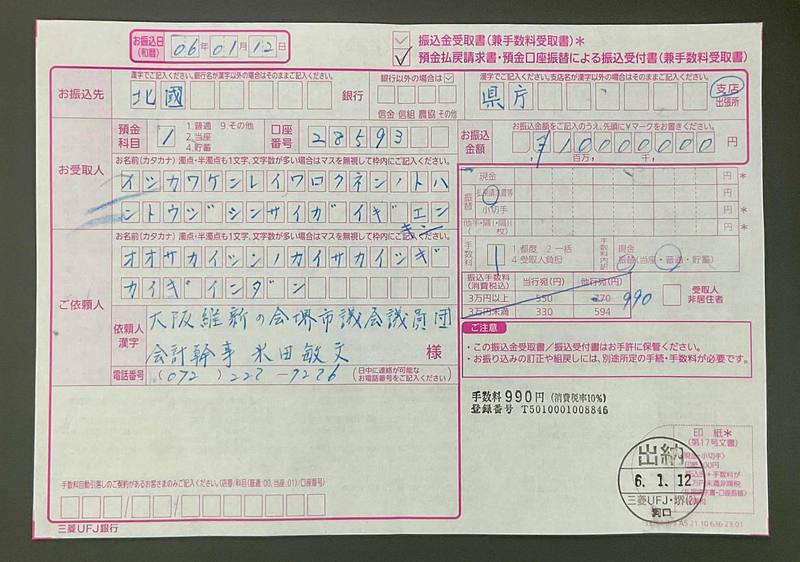 お振込日(和暦) 06年 01月 12日
振込金受取書(兼手数料受取書)*
預金払戻請求書・預金口座振替による振込受付書(兼手数料受取書)
漢字でご記入ください。銀行名が漢字以外はそのままご記入ください。
銀行以外の場合は
漢字でご記入ください。支店名が漢字以外はそのままご記入ください。
お振込先 北國 銀行
信金 信組 農協 その他
県庁 支店 出張所
預金科目 1 1.普通 9.その他 2.当座 4.貯蓄
口座番号 28593
お振込金額をご記入のうえ、先頭に¥マークをお書きください。
お振込金額 ¥10000000円
百万 千
お受取人
お名前(カタカナ)濁点・半濁点も1文字、文字数が多い場合はマスを無視して枠内にご記入ください。
イシカワケンレイワロクネンノトハ
ントウジシンサイガイギエン
キン
お名前(カタカナ)濁点・半濁点も1文字、文字数が多い場合はマスを無視して枠内にご記入ください。
オオサカイシンノカイサカイシギ
カイギインダン
ご依頼人
依頼人漢字 大阪維新の会堺市議会議員団
会計幹事 米田敏文 様
電話番号 (072)222-9226
(日中に連絡が可能なお電話番号をご記入ください)
振替
現金 円*
円
小切手 円*
円*
手数料 1 1.都度 2.一括 4.受取人負担
手数料内訳 現金 振替(当座・普通・貯蓄)
振込手数料(消費税込) 当行宛(円) 他行宛(円)
3万円以上 550 770 990
3万円未満 330 594
受取人非居住者
ご注意
・この振込金受取書/振込受付書はお手許に保管ください。
・お振り込みの訂正や組戻しには、別途所定の手続・手数料が必要です。
手数料 990円 (消費税率10%)
登録番号 T5010001008846
印紙*
(第17号文書)
出納
6.1.12
三菱UFJ・堺(2)
手数料自動引落しのご契約があるお客さまのみご記入ください。(店番/科目(普通:00、当座:01)/口座番号)
三菱UFJ銀行